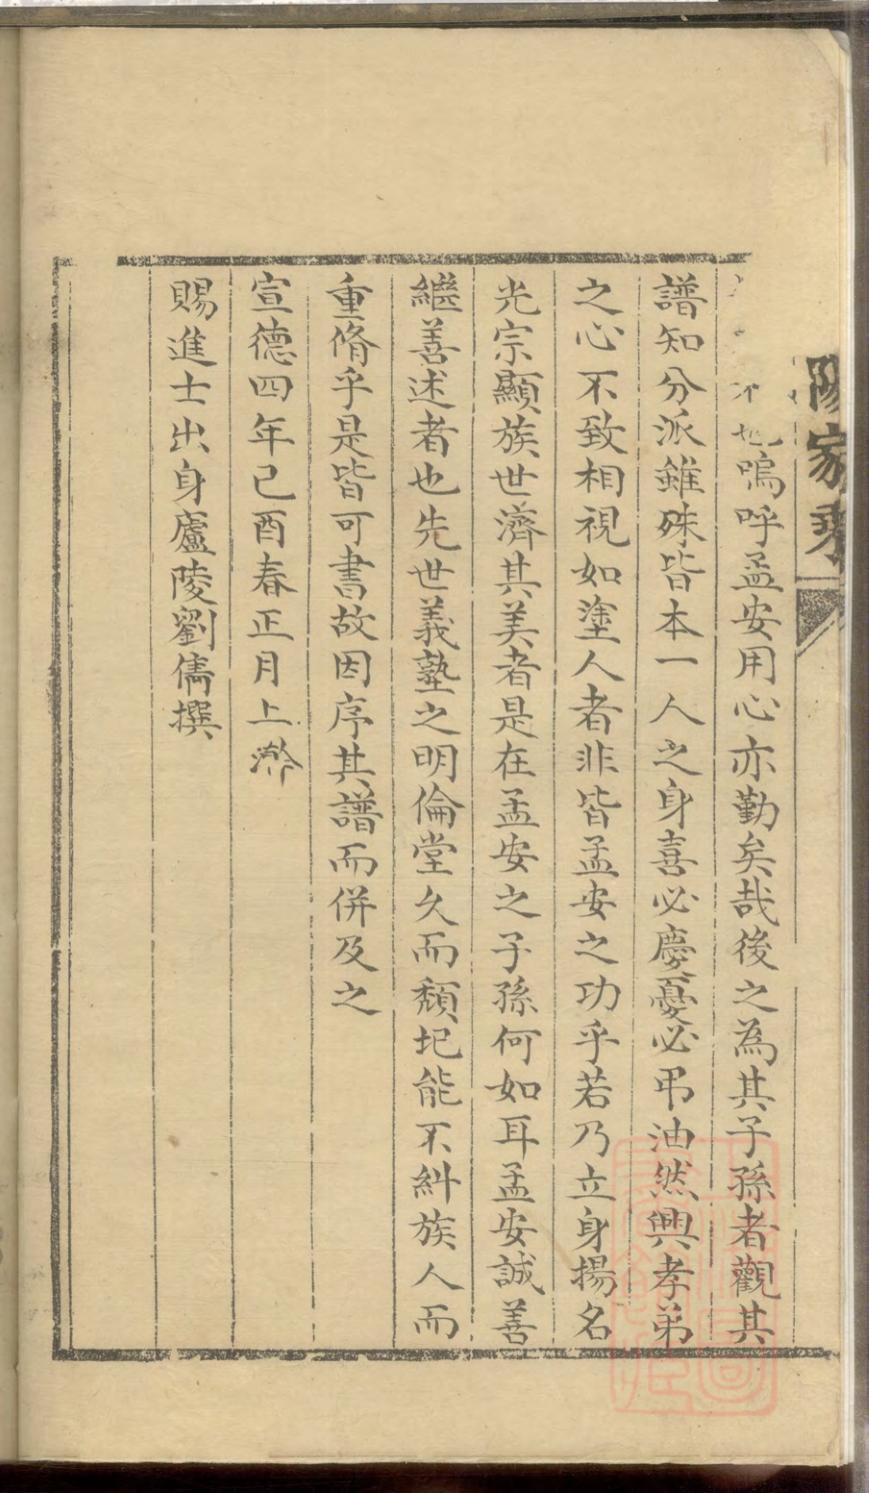 陽家乘
也嗚呼孟安用心亦勤矣哉後之為其子孫者觀其
譜知分派雖殊皆本一人之身喜必慶憂必弔油然興孝弟
之心不致相視如塗人者非皆孟安之功乎若乃立身揚名
光宗顯族世濟其美者是在孟安之子孫何如耳孟安誠善
繼善述者也先世義塾之明倫堂久而頹圮能不糾族人而
重脩乎是皆可書故因序其譜而併及之
宣德四年己酉春正月上澣
賜進士出身廬陵劉儁撰